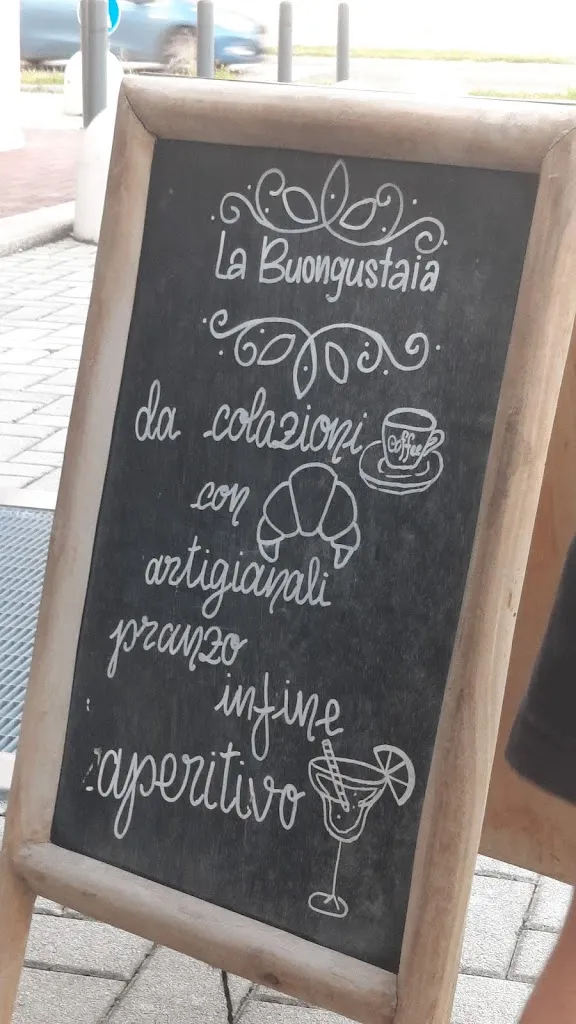 La Buongustaia
da colazioni
coffee
con
artigianali
pranzo
infine
aperitivo